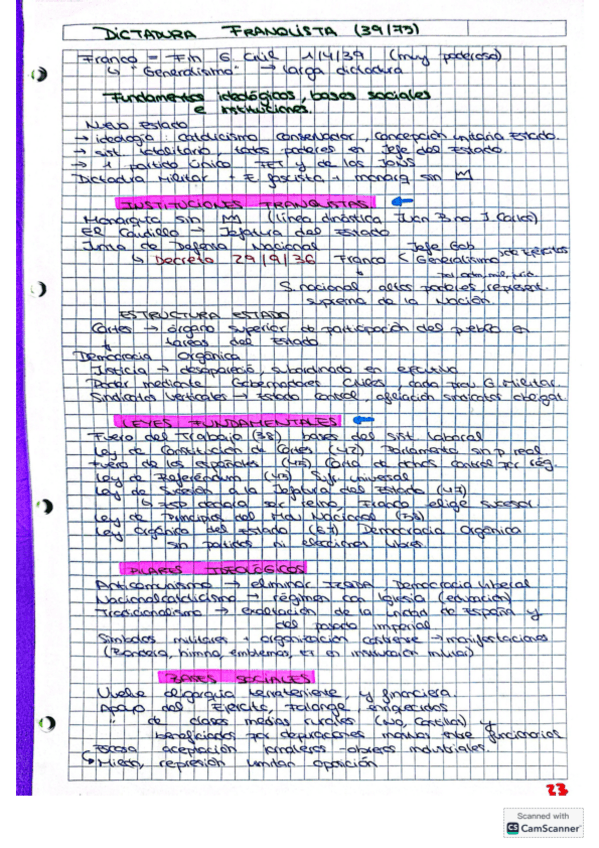 DICTADURA FRANQUISTA (39/75)
Franco = Fin G. Civil 1/4/39 (muy poderoso)
↳ "Generalísimo" → larga dictadura
Fundamentos ideológicos, bases sociales
e instituciones.
Nuevo Estado
→ ideología: catolicismo conservador, concepción unitaria Estado.
→ sist totalitario, todos poderes en Jefe del Estado.
→ 1 partido único FET y de las JONS
Dictadura Militar + E fascista + monarq sin
INSTITUCIONES FRANQUISTAS
Monarquía sin (línea dinástica Juan B no J. Carlos)
El Caudillo → Jefatura del Estado
Junta de Defensa Nacional Jefe Gob
↳ Decreto 29/9/36 Franco < Generalísimo de Ejércitos
S. nacional, altos poderes, represent.
suprema de la Nación.
ESTRUCTURA ESTADO
Cortes → órgano superior de participación del pueblo en
tareas del Estado
Democracia Orgánica
Justicia → desapareció, subordinado en ejecutivo
Poder mediante Gobernadores Civiles, cada prov G. Militar.
Sindicatos Verticales → Estado control, afiliación sindicatos obligat
LEYES FUNDAMENTALES
Fuero del Trabajo (38) bases del sist laboral
Ley de Constitución de Cortes (42) Parlamento sin p. real
Fuero de los Españoles (45) Carta de dchos control por rég.
Ley de Referéndum (45) Sufr. universal
Ley de Sucesión a la Jefatura del Estado (47)
↳ ESP declara por reino, Franco elige sucesor.
Ley de Principios del Mov Nacional (58)
Ley Orgánica del Estado (67) Democracia Orgánica
sin partidos ni elecciones libres.
PILARES IDEOLÓGICOS
Anticomunismo → eliminar IZQDA, Democracia liberal
Nacionalcatolicismo → régimen con Iglesia (educación)
Tradicionalismo → exaltación de la unidad de España y
del pasado imperial
Símbolos militares + organización castrense → manifestaciones
(Bandera, himno, emblemas, en institución militar)
BASES SOCIALES
Vuelve oligarquía terrateniente, y financiera.
Apoyo del Ejército, Falange, enriquecidos
" de clases medias rurales (No, Castilla) y
beneficiados por depuraciones entre funcionarios
Escasa aceptación jornaleros - obreros industriales.
↳ Miedo, represión limitan oposición
23
Scanned with
CS CamScanner